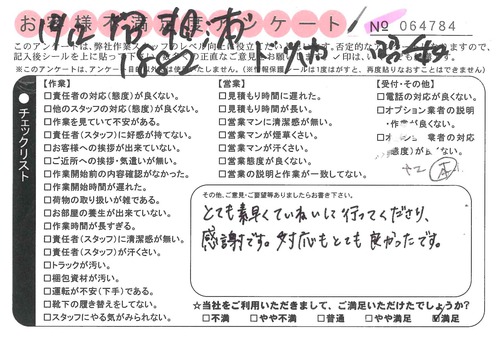 お客様不満足度アンケート
№ 064784
このアンケートは、弊社作業スタッフのレベル向上に役立て
記入後シールを上に貼って下
※このアンケートは、アンケート目的以外は使用いたしません。(※情報保護シールは1度はがすと、再度貼りなおすことはできません)
チェックリスト
【作業】
□責任者の対応(態度)が良くない。
□他のスタッフの対応(態度)が良くない。
□作業を見ていて不安がある。
□責任者(スタッフ)に好感が持てない。
□お客様への挨拶が出来ていない。
□ご近所への挨拶・気遣いが無い。
□作業開始前の内容確認がなかった。
□作業開始時間が遅れた。
□荷物の取り扱いが雑である。
□お部屋の養生が出来ていない。
□作業時間が長すぎる。
□責任者(スタッフ)に清潔感が無い。
□責任者(スタッフ)が汗くさい。
□トラックが汚い。
□梱包資材が汚い。
□運転が不安(下手)である。
□靴下の履き替えをしてない。
□スタッフにやる気がみられない。
【営業】
□見積もり時間に遅れた。
□見積もり時間が長い。
□営業マンに清潔感が無い。
□営業マンが煙草くさい。
□営業マンが汗くさい。
□営業態度が良くない。
□営業の説明と作業が一致してない。
【受付・その他】
□電話の対応が良くない。
□オプション業者の説明
・作業が良くない。
業者の対応
その他、ご意見・ご要望等ありましたらお書き下さい。
とても素早くていねいして行ってくださり、
感謝です。対応もとても良かったです。
☆当社をご利用いただきまして、ご満足いただけたでしょうか?
□不満 □やや不満 □普通 □やや満足 ☑満足